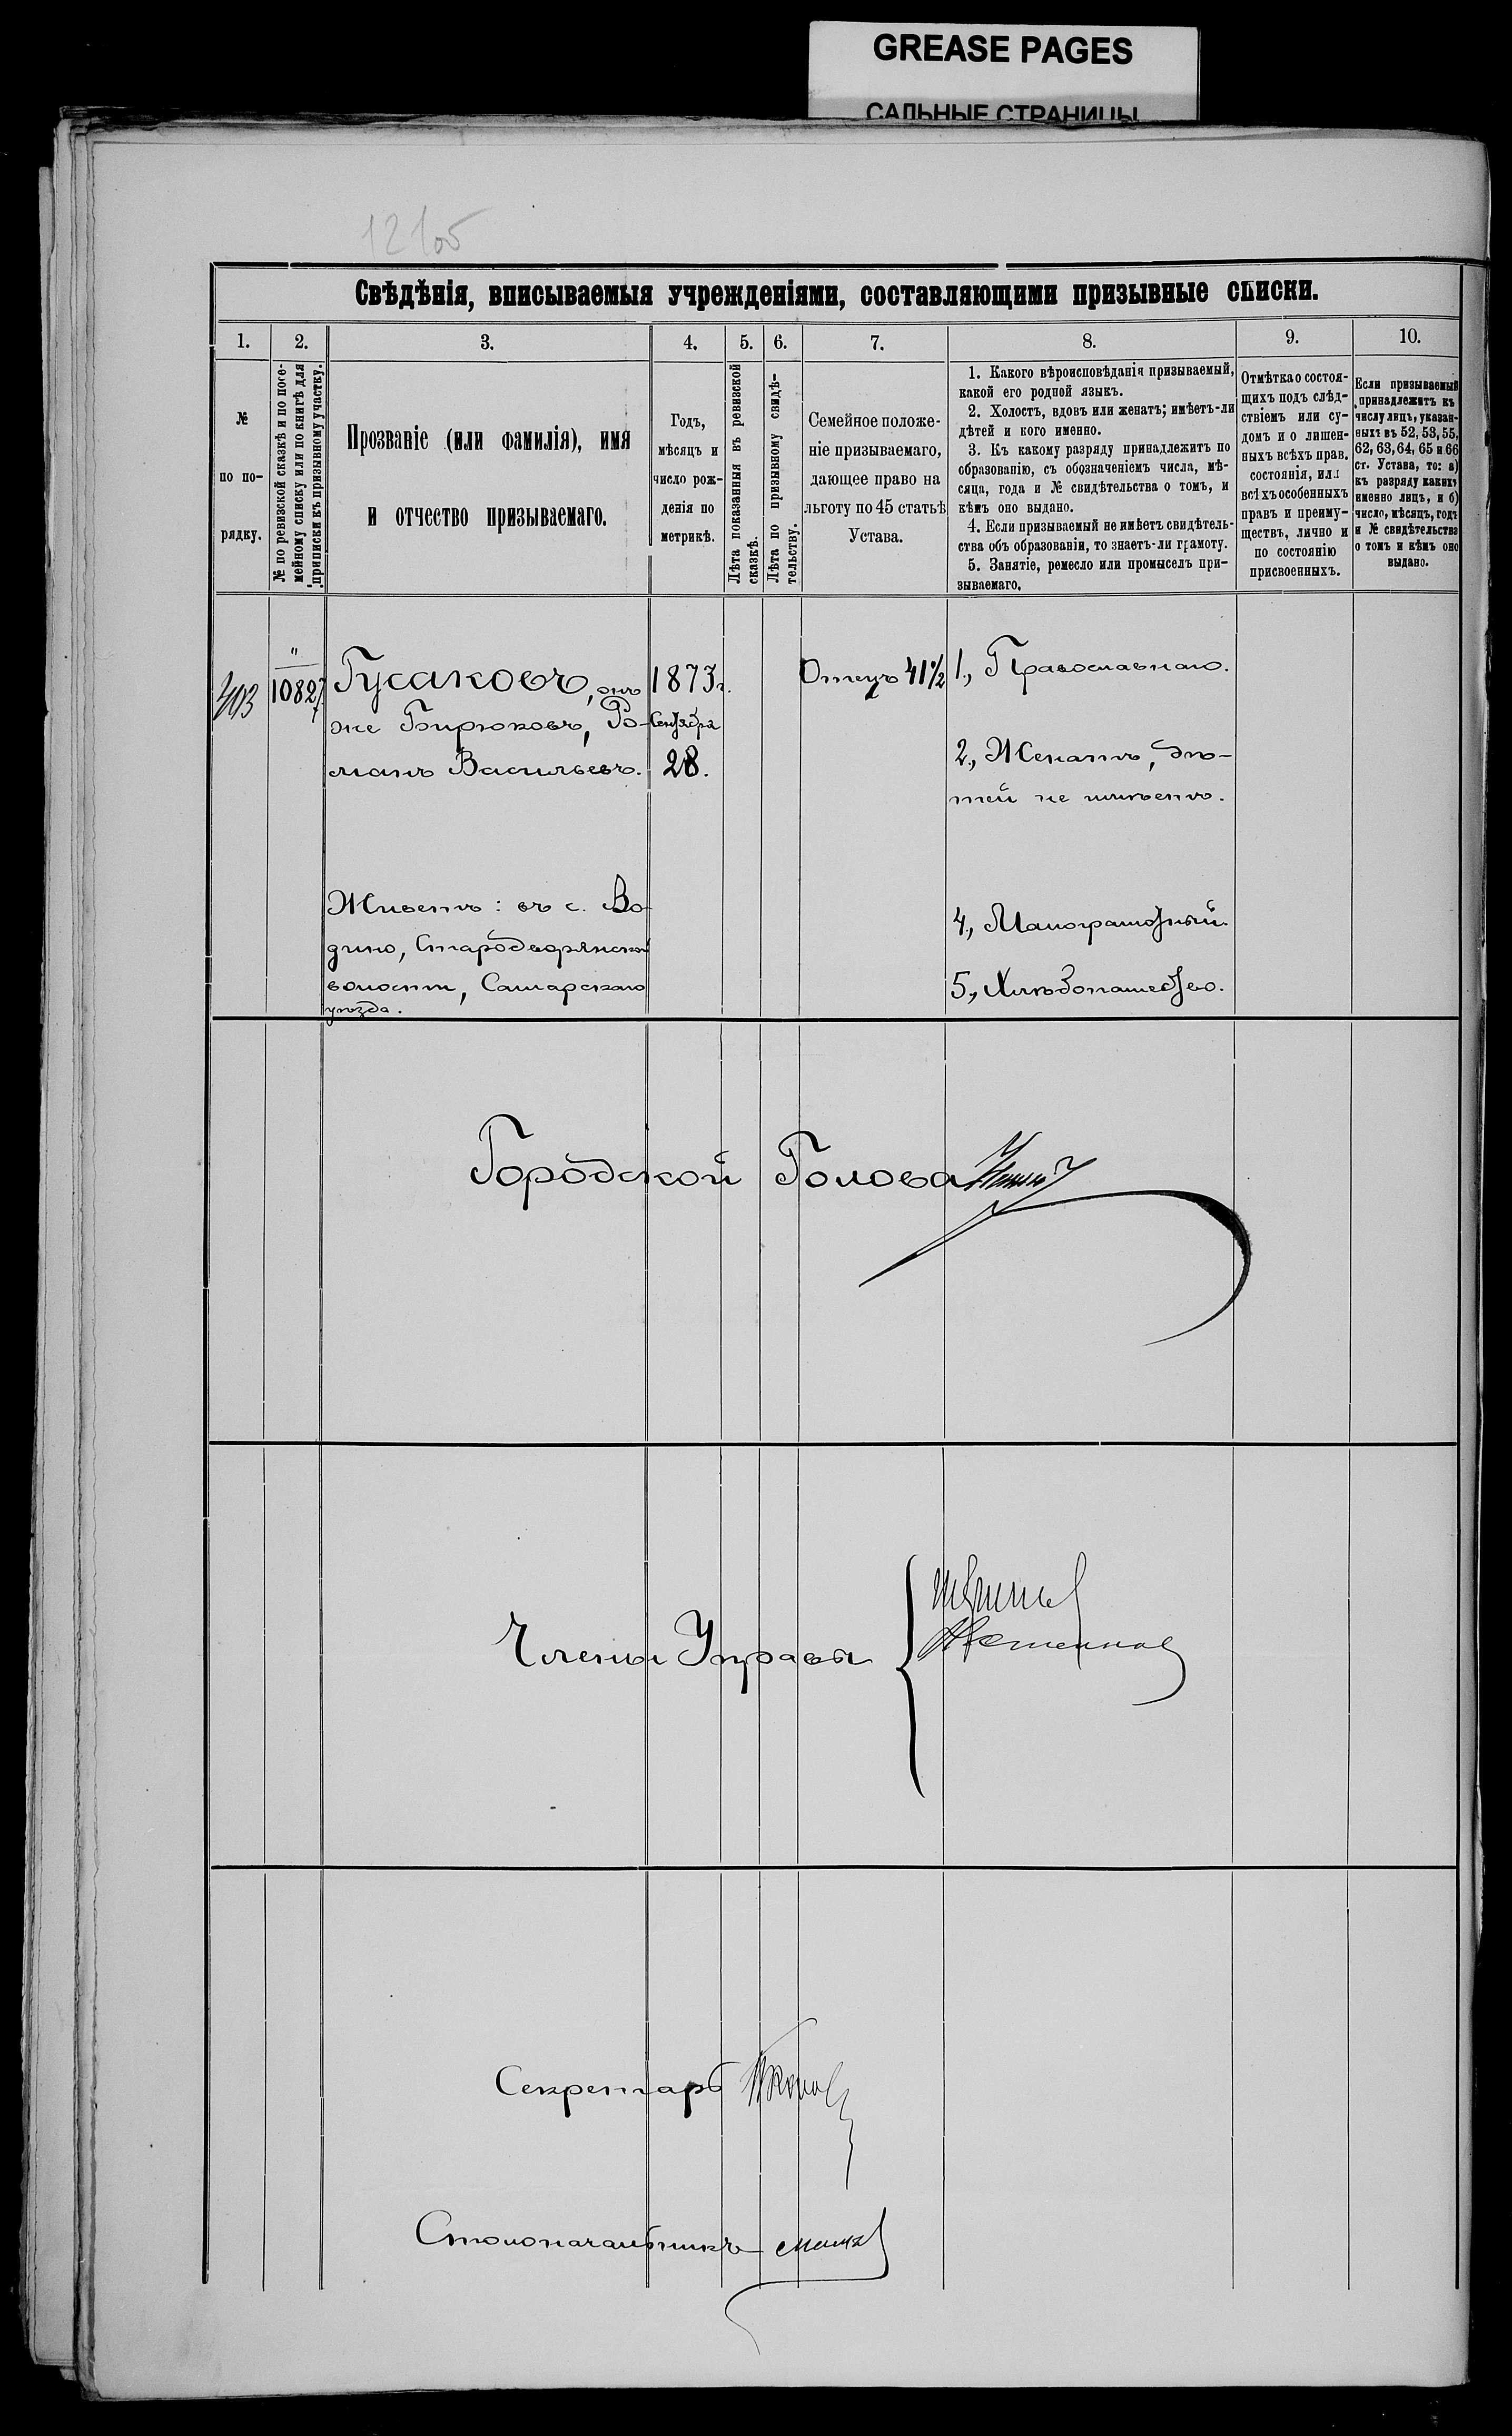 GREASE PAGES
САЛЬНЫЕ СТРАНИЦЫ
12105
Свѣдѣнія, вписываемыя учрежденіями, составляющими призывные списки.
1.
2.
3.
4.
5.
6.
7.
8.
9.
10.
№
по по-
рядку.
№ по ревизской сказкѣ и по посе-
мейному списку или по книгѣ для
приписки къ призывному участку.
Прозваніе (или фамилія), имя
и отчество призываемаго.
Годъ,
мѣсяцъ и
число рож-
денія по
метрикѣ.
Лѣта показанныя въ ревизской
сказкѣ.
Лѣта по призывному свидѣ-
тельству.
Семейное положе-
ніе призываемаго,
дающее право на
льготу по 45 статьѣ
Устава.
1. Какого вѣроисповѣданія призываемый,
какой его родной языкъ.
2. Холостъ, вдовъ или женатъ; имѣетъ-ли
дѣтей и кого именно.
3. Къ какому разряду принадлежитъ по
образованію, съ обозначеніемъ числа, мѣ-
сяца, года и № свидѣтельства о томъ, и
кѣмъ оно выдано.
4. Если призываемый не имѣетъ свидѣтель-
ства объ образованіи, то знаетъ-ли грамоту.
5. Занятіе, ремесло или промыселъ при-
зываемаго.
Отмѣтка о состоя-
щихъ подъ слѣд-
ствіемъ или су-
домъ и о лишен-
ныхъ всѣхъ прав.
состоянія, или
всѣхъ особенныхъ
правъ и преиму-
ществъ, лично и
по состоянію
присвоенныхъ.
Если призываемый
принадлежитъ къ
числу лицъ, указан-
ныхъ въ 52, 53, 55,
62, 63, 64, 65 и 66
ст. Устава, то: а)
къ разряду какихъ
именно лицъ, и б)
число, мѣсяцъ, годъ
и № свидѣтельства
о томъ и кѣмъ оно
выдано.
403
"
10827
Гусаковъ, онъ
же Бирюковъ, Ро-
манъ Васильевъ.
Живетъ: въ с. Во-
дино, Стародворянской
волости, Самарскаго
уѣзда.
1873 г.
Сентября
28.
Отецъ 41½
1., Православнаго.
2., Женатъ, дѣ-
тей не имѣетъ.
4., Малограмотный.
5., Хлѣбопашество.
Городской Голова
Члены Управы
Секретарь
Столоначальникъ